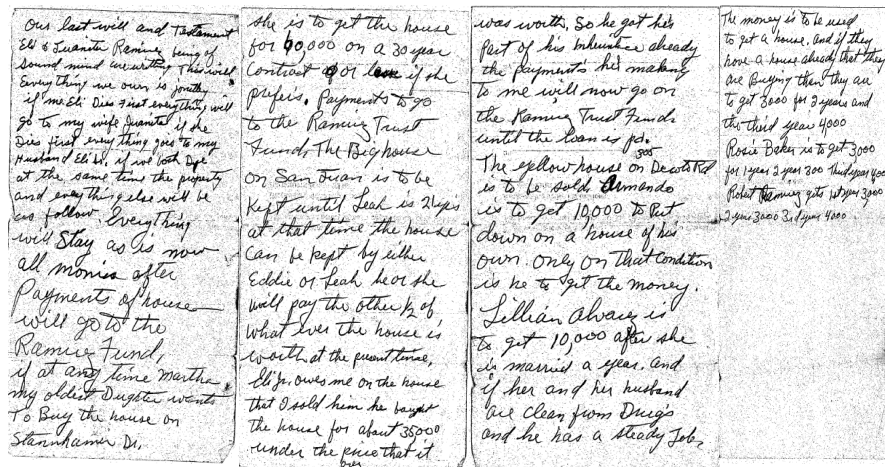 Our last will and Testament
Eli & Juanita Ramirez being of
sound mind are writing This will
Everything we own is jointly.
if me Eli Dies First everything will
go to my wife Juanita if she
Dies first every thing goes to my
Husband Eli Sr. if we both Dye
at the same time the property
and everything else will be
as follow. Everything
will Stay as is now
all monies after
Payments of house
will go to the
Ramirez Fund,
if at any time Martha
my oldest Dugter wants
To Buy the house on
Stannhamer Dr,
she is to get the house
for 60,000 on a 30 year
Contract or if she
prefers. Payments to go
to the Ramirez Trust
Fund, The Big house
on San Juan is to be
Kept until Leah is 21 yrs
at that time the house
can be kept by either
Eddie or Leah he or she
will pay the other ½ of
what ever the house is
worth at the present tense,
Eli Jr. owes me on the house
that I sold him he bought
the house for about 35000
under the price that it
over
was worth. So he got he's
Part of his inheritance already
the payments he's making
to me will now go on
the Ramirez Trust Fund
until the loan is pd.
The yellow house on 305 Desota Rd
is to be sold. Armando
is to get 10,000 to Put
down on a house of his
own. only on That Condition
is he to get the money.
Lillian Alvarez is
to get 10,000 after she
is married a year. and
if her and her husband
are clean from Drugs
and he has a steady Job,
The money is to be used
to get a house. and if they
have a house already that they
are Buying then they are
to get 3000 for 2 years and
the third year 4000
Rosie Baker is to get 3000
for 1 year 2 year 300 Third year 400
Robert Ramirez gets 1st year 3000
2 year 3000 3rd year 4000